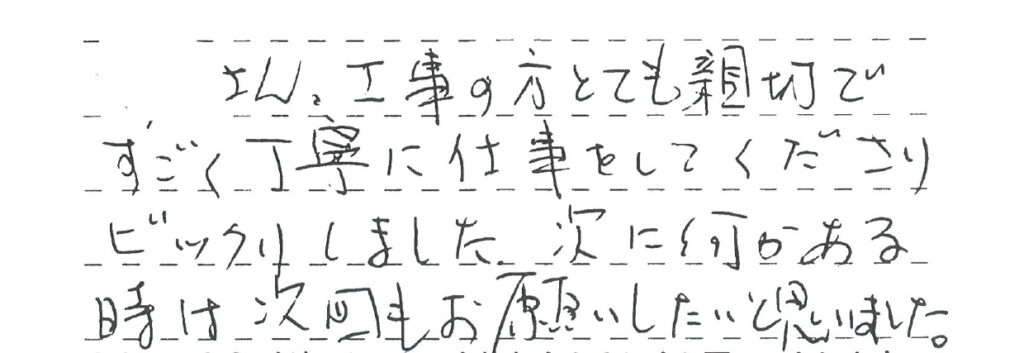 さん、工事の方とても親切で
すごく丁寧に仕事をしてくださり
ビックリしました。次に何かある
時は次回もお願いしたいと思いました。